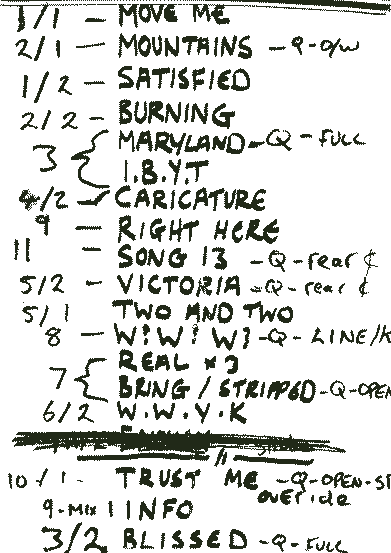 1/1 - MOVE ME
2/1 - MOUNTAINS - Q-O/W
1/2 - SATISFIED
2/2 - BURNING
3 { MARYLAND - Q - FULL
I.B.Y.T
4/2 - CARICATURE
9 - RIGHT HERE
11 - SONG 13 - Q - rear ¢
5/2 - VICTORIA - Q - rear ¢
5/1 TWO AND TWO
8 - W? W? W? - Q - LINE/K
7 { REAL x 3
BRING / STRIPPED - Q - OPEN
6/2 W.W.Y.K
10/1 - TRUST ME - Q - OPEN-ST
override
9-MIX 1 INFO
3/2 BLISSED - Q - FULL